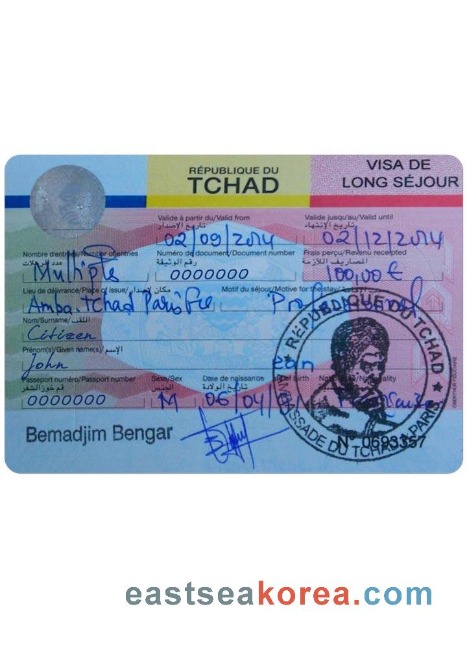 RÉPUBLIQUE DU
TCHAD
VISA DE
LONG SÉJOUR
Valide à partir du/Valid from
تاريخ الإصدار
02/09/2014
Valide jusqu'au/Valid until
تاريخ الإنتهاء
02/12/2014
Nombre d'entrées/Number of entries
عدد الرحلات
Multiple
Numéro de document/Document number
رقم الوثيقة
0000000
Frais perçu/Revenu receipted
المصاريف اللازمة
100,00 €
Lieu de délivrance/Place of issue/مكان الإصدار
Amba. Tchad Paris
Motif du séjour/Motive for the stay
Nom/Surname/اللقب
Citizen
Prénom(s)/Given name(s)/الإسم
John
Passeport numéro/Passport number
رقم جواز السفر
0000000
Sexe/Sex
الجنس
M
Date de naissance
تاريخ الولادة
06/04/
Bemadjim Bengar
N° 0693357
RÉPUBLIQUE DU TCHAD
AMBASSADE DU TCHAD PARIS
eastseakorea.com